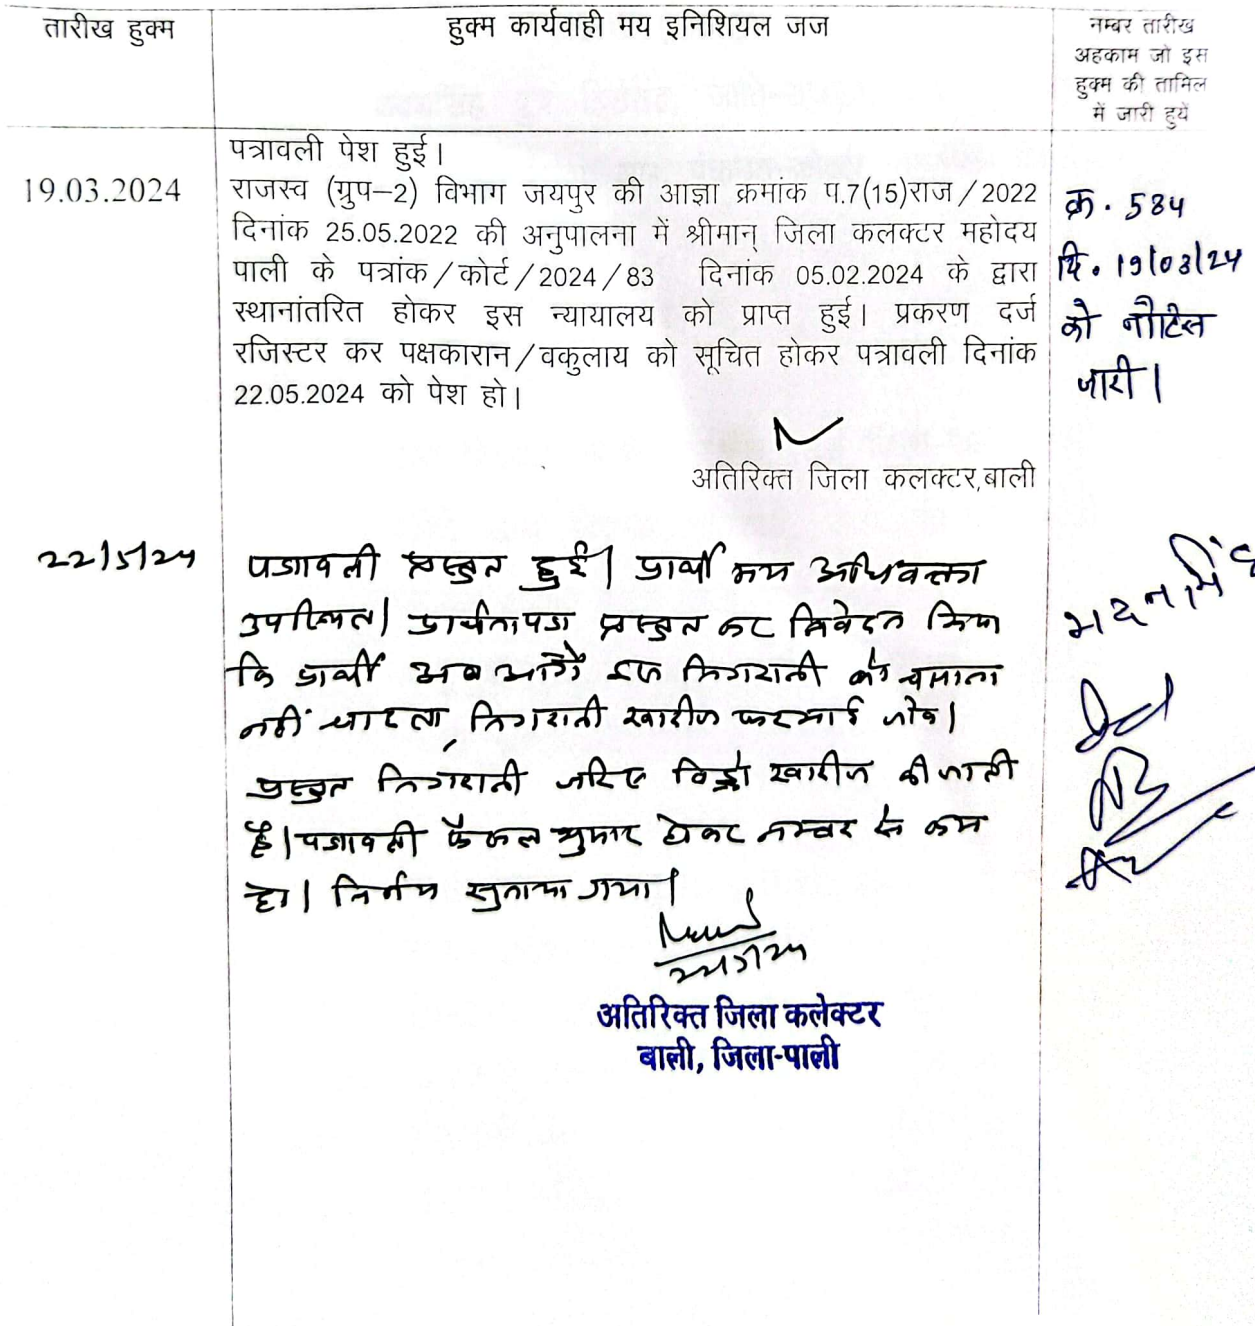 तारीख हुक्म
हुक्म कार्यवाही मय इनिशियल जज
नम्बर तारीख
अहकाम जो इस
हुक्म की तामिल
में जारी हुयें
पत्रावली पेश हुई।
19.03.2024
राजस्व (ग्रुप–2) विभाग जयपुर की आज्ञा क्रमांक प.7(15)राज/2022
दिनांक 25.05.2022 की अनुपालना में श्रीमान् जिला कलक्टर महोदय
पाली के पत्रांक/कोर्ट/2024/83 दिनांक 05.02.2024 के द्वारा
स्थानांतरित होकर इस न्यायालय को प्राप्त हुई। प्रकरण दर्ज
रजिस्टर कर पक्षकारान/वकुलाय को सूचित होकर पत्रावली दिनांक
22.05.2024 को पेश हो।
क्र. 584
दि. 19/03/24
को नोटिस
जारी।
अतिरिक्त जिला कलक्टर,बाली
22/5/24
पत्रावली प्रस्तुत हुई। प्रार्थी मय अधिवक्ता
उपस्थित। प्रार्थनापत्र प्रस्तुत कर निवेदन किया
कि प्रार्थी अब आगे इस निगरानी को चलाना
नहीं चाहता, निगरानी खारीज फरमाई जावे।
प्रस्तुत निगरानी जरिए विड्रो खारीज की जाती
है। पत्रावली फैसल शुमार होकर नम्बर से कम
हो। निर्णय सुनाया गया।
मदनसिंह
अतिरिक्त जिला कलेक्टर
बाली, जिला-पाली